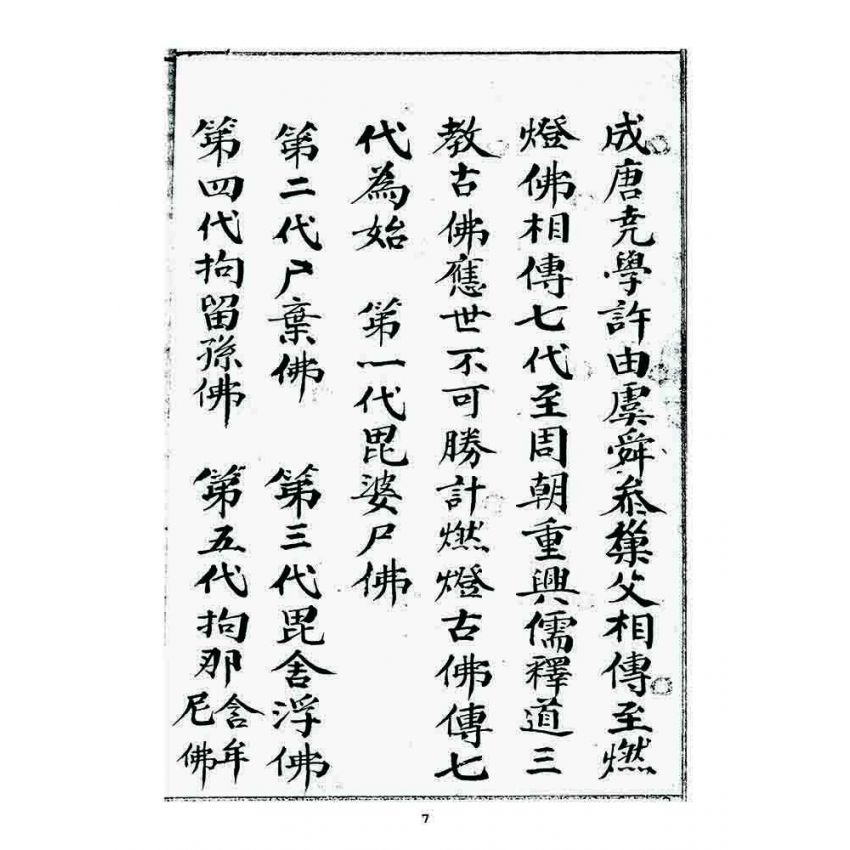 成唐尭學許由虞舜叅巢父相傳至燃
燈佛相傳七代至周朝重興儒釋道三
教古佛應世不可勝計燃燈古佛傳七
代為始 第一代毘婆尸佛
第二代尸棄佛 第三代毘舍浮佛
第四代拘留孫佛 第五代拘那含牟尼佛
7